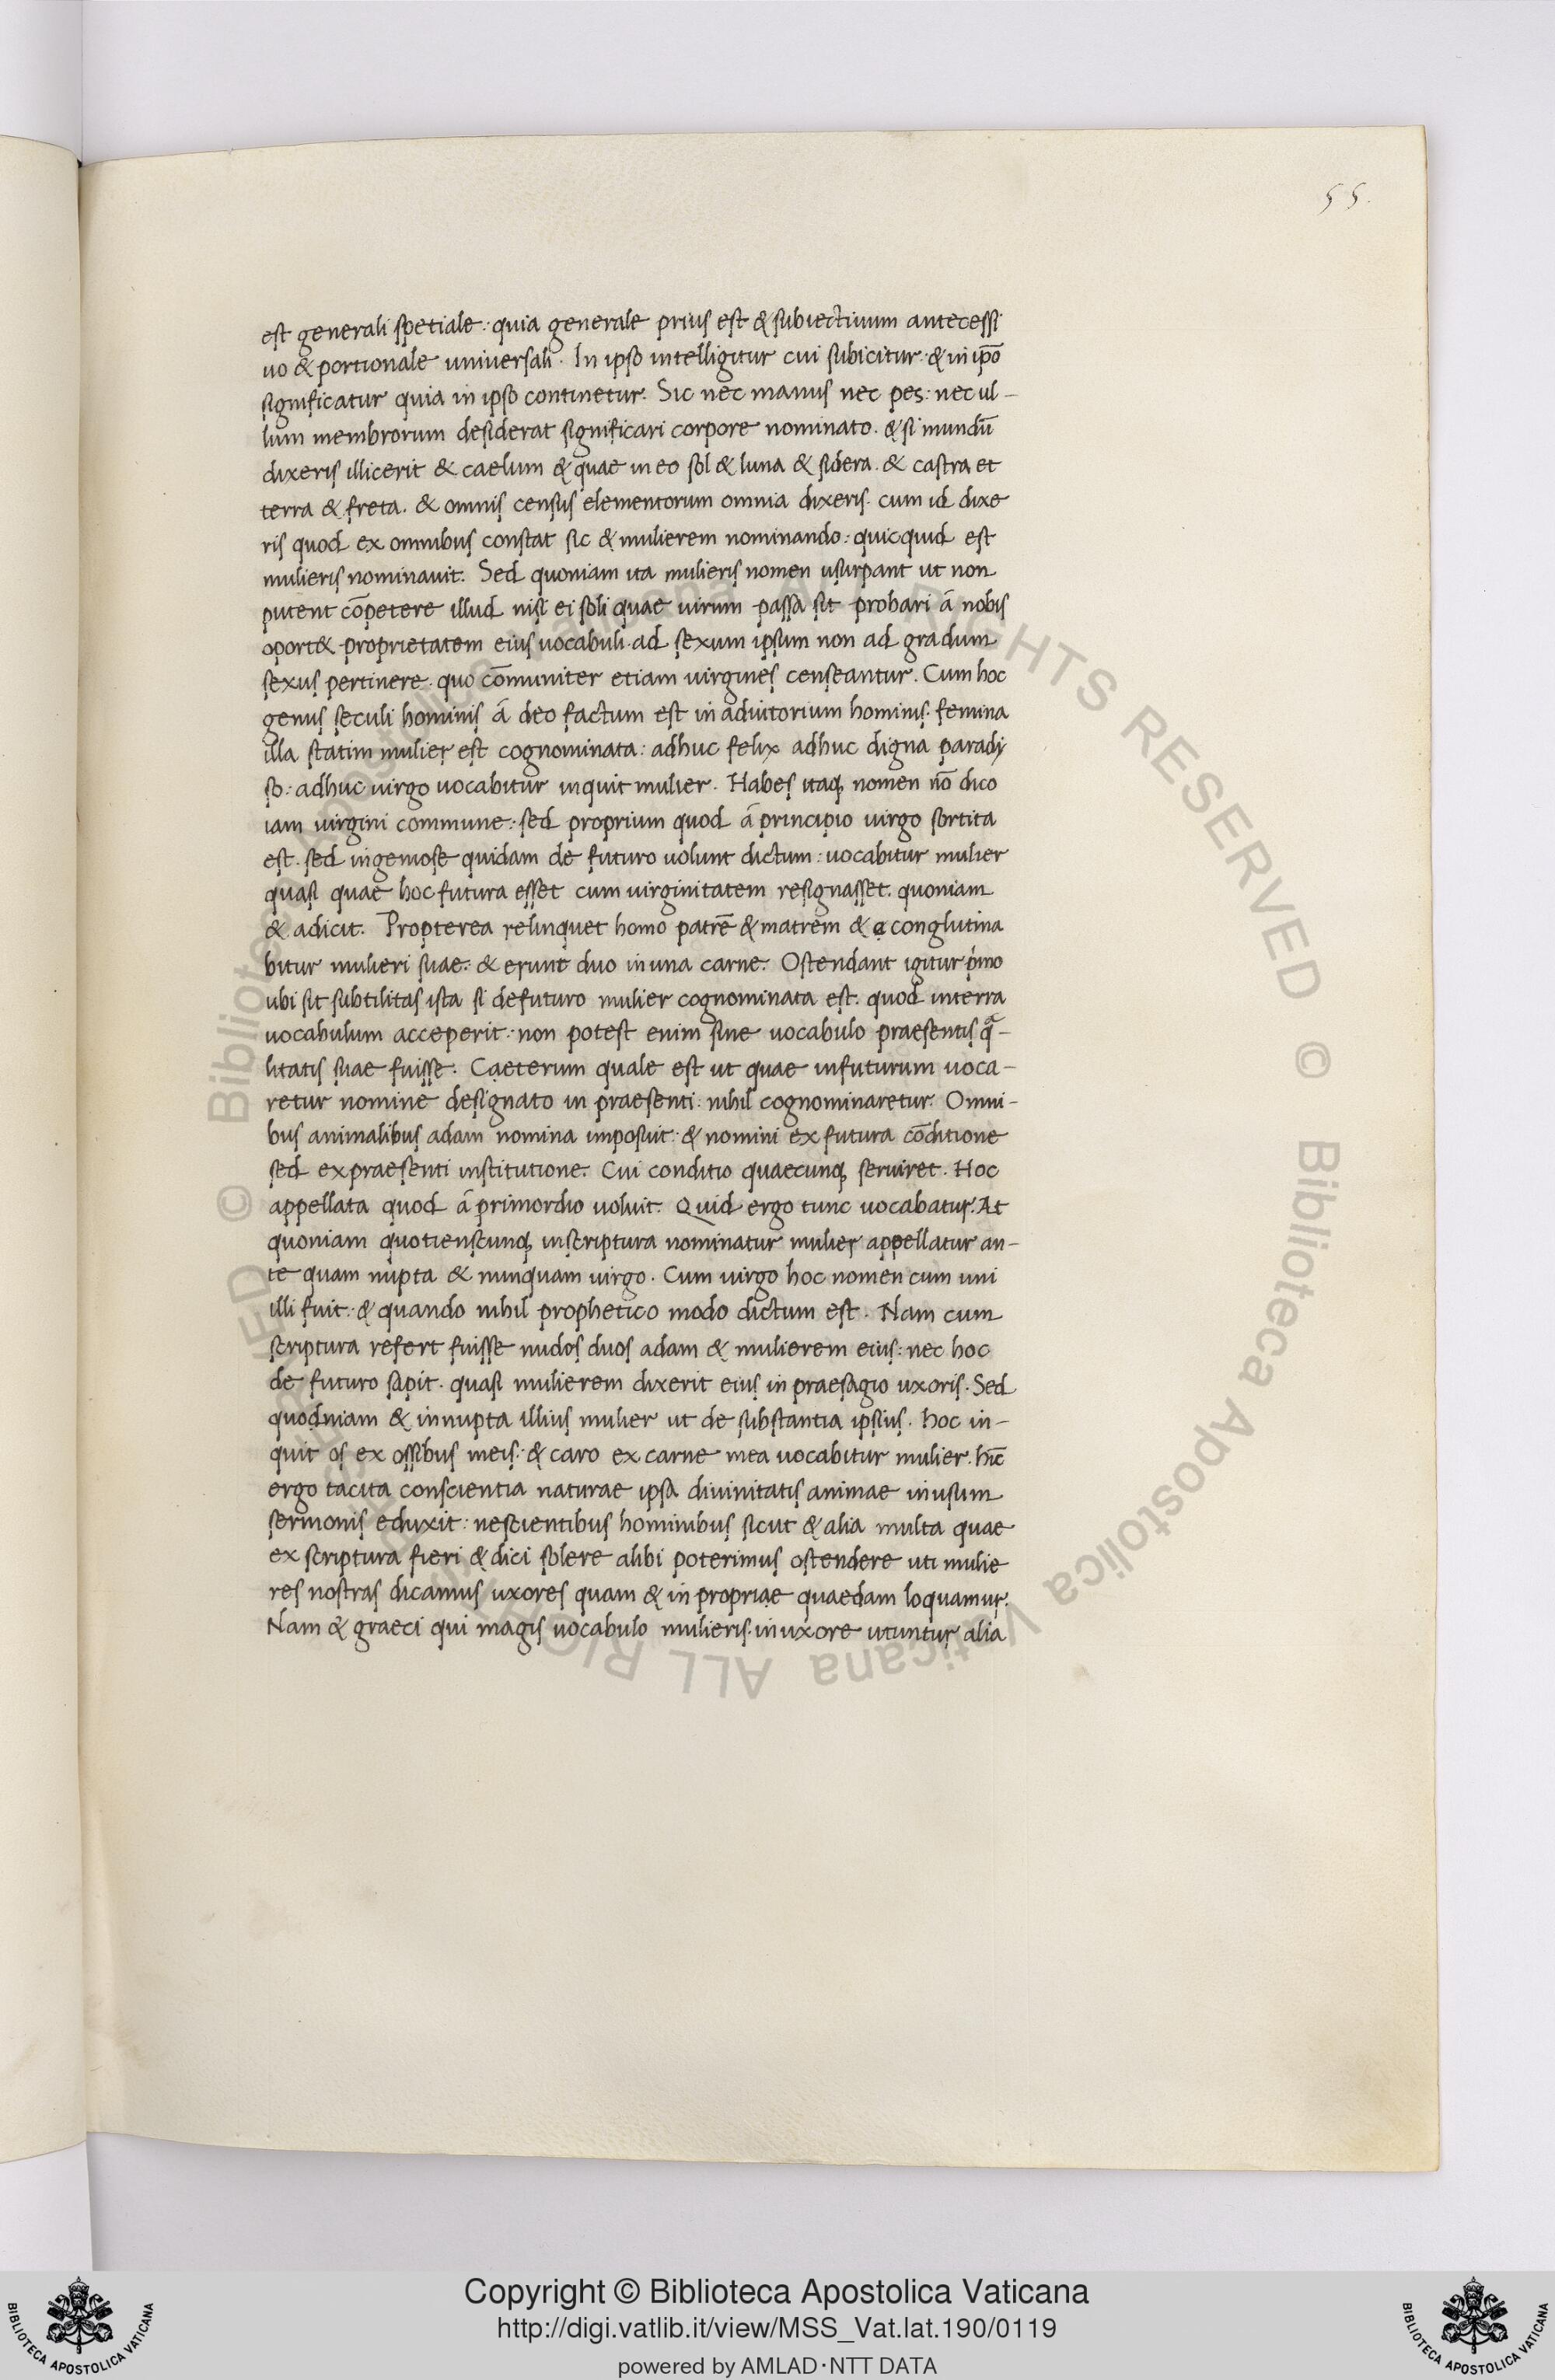 55.
est generali spetiale: quia generale prius est & subiectiuum antecessi
uo & portionale uniuersali. In ipso intelligitur cui subicitur: & in ip̄o
significatur quia in ipso continetur. Sic nec manus nec pes: nec ul-
lum membrorum desiderat significari corpore nominato. & si mundū
dixeris illicerit & caelum & quae in eo sol & luna & sidera. & castra et
terra & freta. & omnis census elementorum omnia dixeris. cum id dixe
ris quod ex omnibus constat sic & mulierem nominando: quicquid est
mulieris nominauit. Sed quoniam ita mulieris nomen usurpant ut non
putent cōpetere illud nisi ei soli quae uirum passa sit probari á nobis
oport& proprietatem eius uocabuli ad sexum ipsum non ad gradum
sexus pertinere. quo cōmuniter etiam uirgines censeantur. Cum hoc
genus seculi hominis á deo factum est in adiutorium hominis. femina
illa statim mulier est cognominata: adhuc felix adhuc digna paradi
so: adhuc uirgo uocabitur inquit mulier. Habes itaq; nomen nō dico
iam uirgini commune: sed proprium quod á principio uirgo sortita
est. sed ingeniose quidam de futuro uolunt dictum: uocabitur mulier
quasi quae hoc futura esset cum uirginitatem resignasset. quoniam
& adicit. Propterea relinquet homo patrē & matrem & a conglutina
bitur mulieri suae: & erunt duo in una carne. Ostendant igitur pimo
ubi sit subtilitas ista si defuturo mulier cognominata est. quod interra
uocabulum acceperit: non potest enim sine uocabulo praesentis qa-
litatis suae fuisse. Caeterum quale est ut quae infuturum uoca-
retur nomine designato in praesenti: nihil cognominaretur. Omni-
bus animalibus adam nomina imposuit: & nomini ex futura cōditione
sed expraesenti institutione. Cui conditio quaecunq; seruiret. Hoc
appellata quod á primordio uoluit. Quid ergo tunc uocabatur. At
quoniam quotienscunq; inscriptura nominatur mulier appellatur an-
te quam nupta & nunquam uirgo. Cum uirgo hoc nomen cum uni
illi fuit: & quando nihil prophetico modo dictum est. Nam cum
scriptura refert fuisse nudos duos adam & mulierem eius: nec hoc
de futuro sapit. quasi mulierem dixerit eius in praesagio uxoris. Sed
quodniam & innupta illius mulier ut de substantia ipsius. hoc in-
quit os ex ossibus meis: & caro ex carne mea uocabitur mulier. hīc
ergo tacita conscientia naturae ipsa diuinitatis animae inusum
sermonis eduxit: nescientibus hominibus sicut & alia multa quae
ex scriptura fieri & dici solere alibi poterimus ostendere uti mulie
res nostras dicamus uxores quam & in propriae quaedam loquamur.
Nam & graeci qui magis uocabulo mulieris in uxore utuntur alia
© Biblioteca Apostolica Vaticana ALL RIGHTS RESERVED © Biblioteca Apostolica Vaticana ALL RIGHTS RESERVED
Copyright © Biblioteca Apostolica Vaticana
http://digi.vatlib.it/view/MSS_Vat.lat.190/0119
powered by AMLAD·NTT DATA
BIBLIOTECA APOSTOLICA VATICANA
BIBLIOTECA APOSTOLICA VATICANA